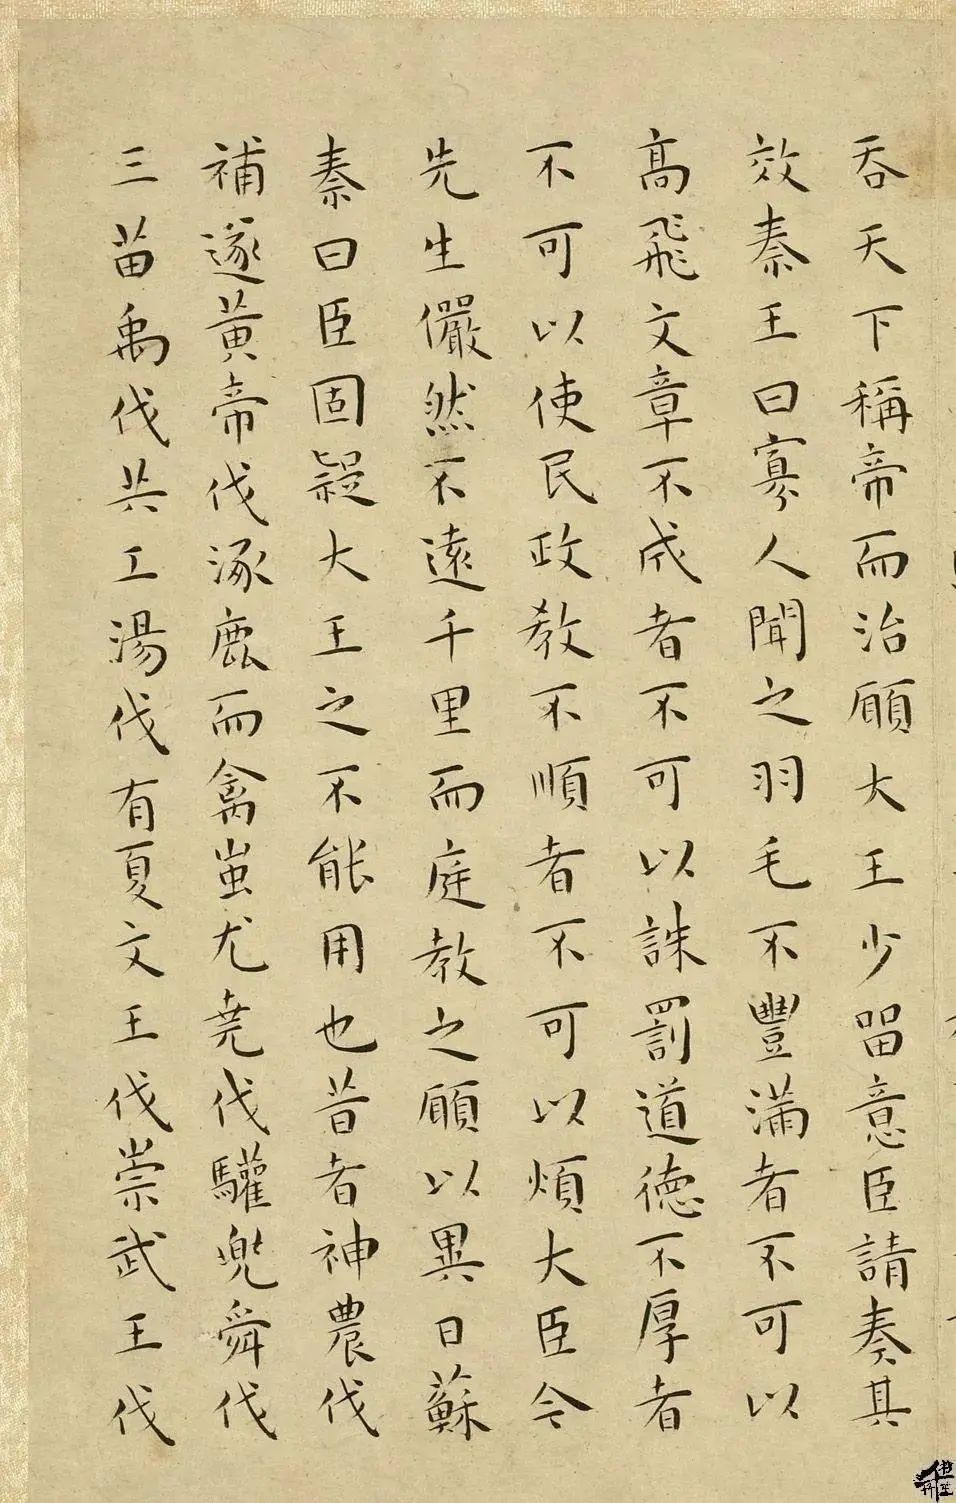 吞天下稱帝而治願大王少留意臣請奏其
效秦王曰寡人聞之羽毛不豐滿者不可以
高飛文章不成者不可以誅罰道德不厚者
不可以使民政教不順者不可以煩大臣今
先生儼然不遠千里而庭教之願以異日蘇
秦曰臣固疑大王之不能用也昔者神農伐
補遂黃帝伐涿鹿而禽蚩尤堯伐驩兜舜伐
三苗禹伐共工湯伐有夏文王伐崇武王伐